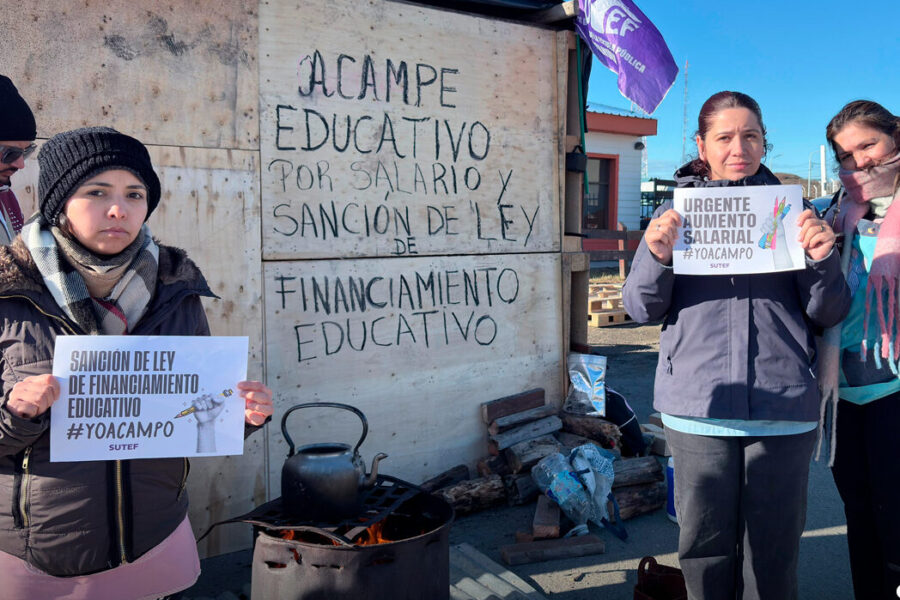 ACAMPE
EDUCATIVO
POR SALARIO Y
SANCIÓN DE LEY
DE
FINANCIAMIENTO
EDUCATIVO
SANCIÓN DE LEY
DE FINANCIAMIENTO
EDUCATIVO
#YOACAMPO
SUTEF
URGENTE
AUMENTO
SALARIAL
#YOACAMPO
SUTEF